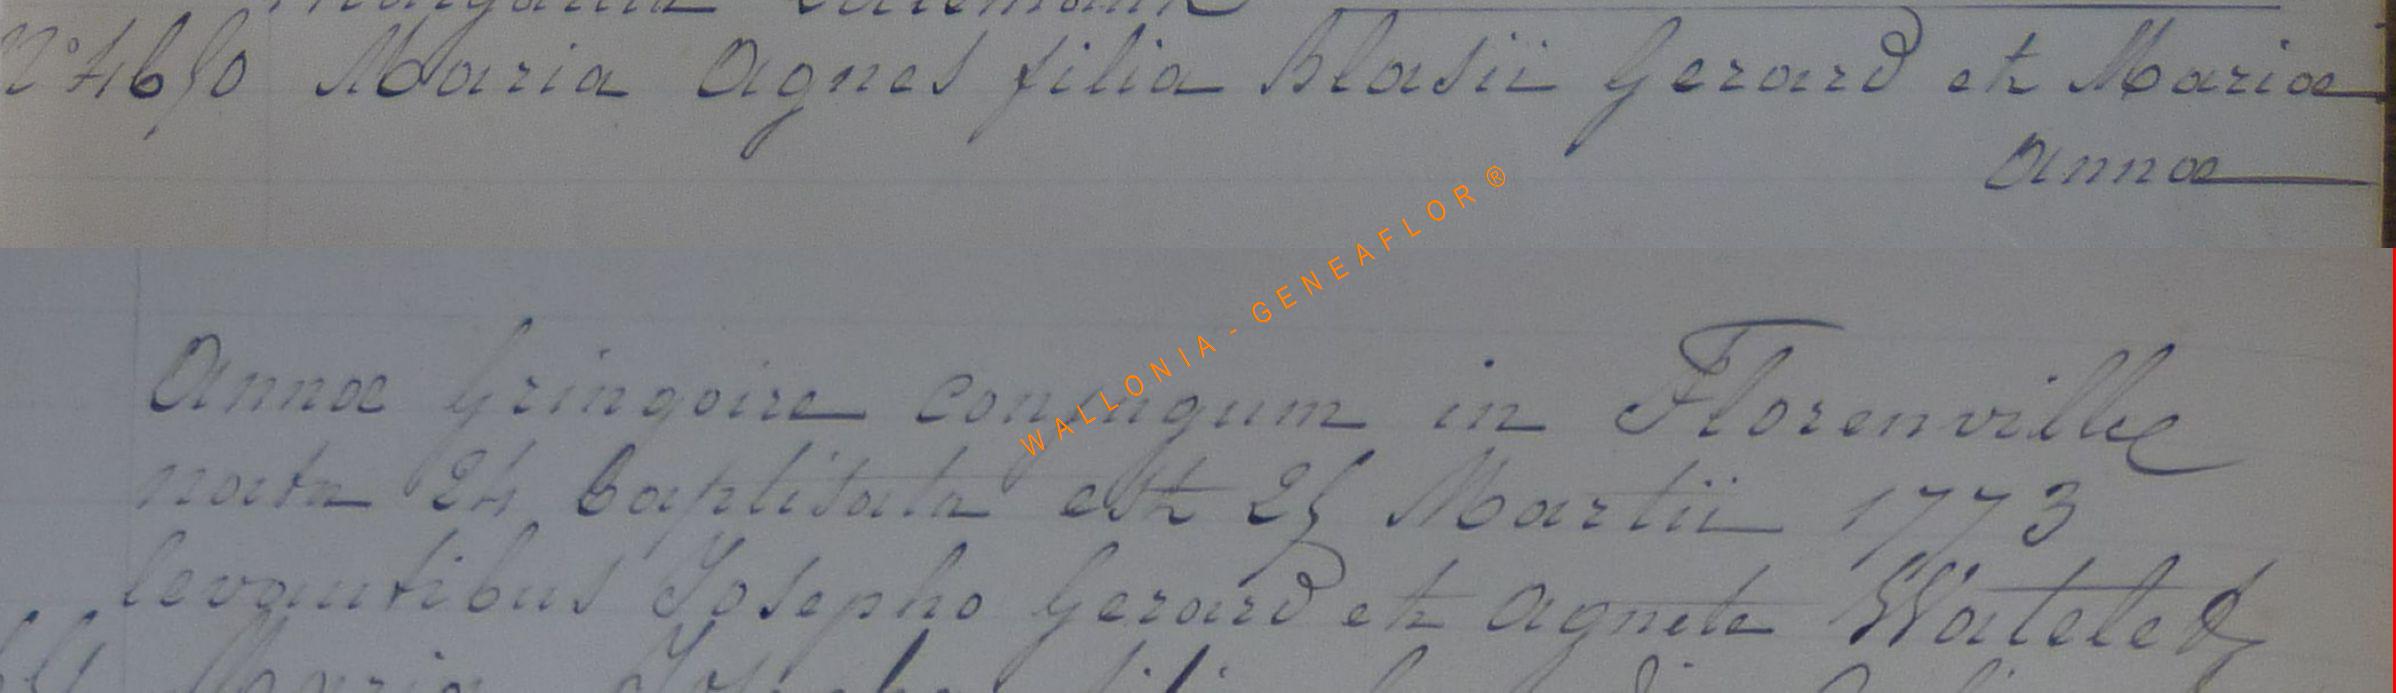 N° 4650 Maria Agnes filia Blasii Gerard et Mariæ
Annæ
Annæ Gringoire conjugum in Florenville
nata 24 baptisata est 25 Martii 1773
levantibus Josepho Gerard et Agnete Watelet
Maria Josepha filia
WALLONIA - GENEAFLOR ®